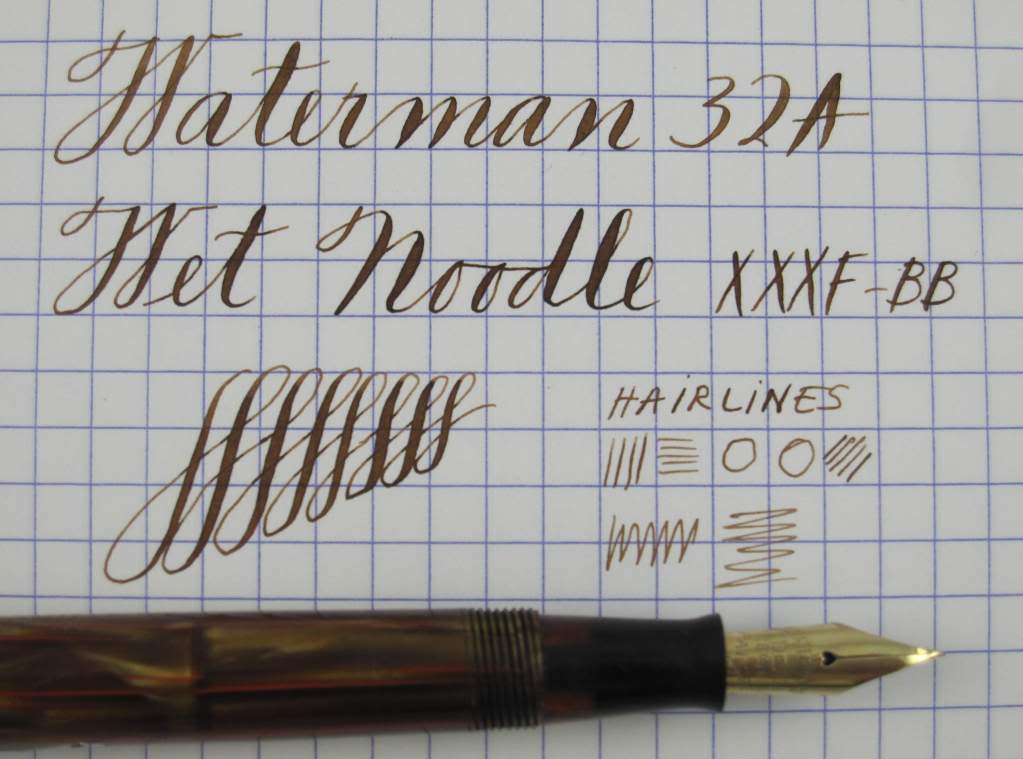 Waterman 32A
Wet Noodle XXXF-BB
HAIRLINES